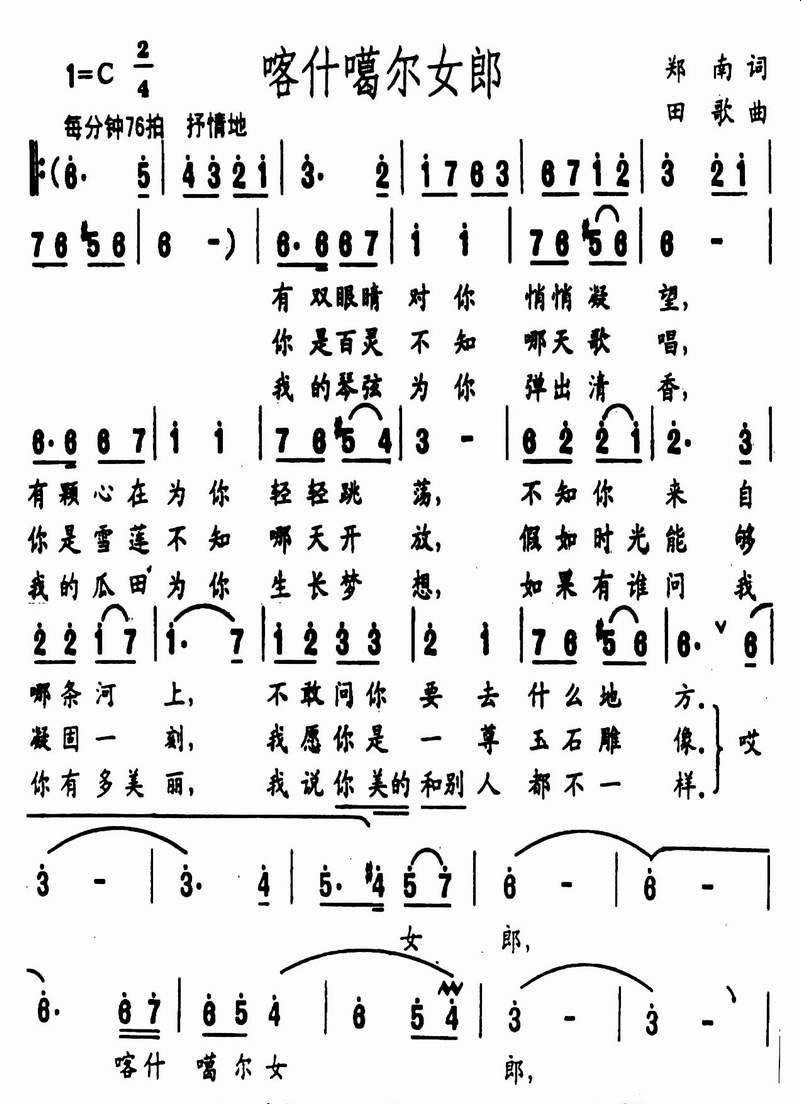 喀什噶尔女郎
1=C 2/4
郑南词
田歌曲
每分钟76拍 抒情地
‖:(6. 5 | 4321 | 3. 2 | 1763 | 6712 | 3 21 |
76 #56 | 6 -) | 6.667 | 1 1 | 76 #56 | 6 - |
有双眼睛对你悄悄凝望,
你是百灵不知哪天歌唱,
我的琴弦为你弹出清香,
6.6 67 | 1 1 | 76 #54 | 3 - | 62 21 | 2. 3 |
有颗心在为你轻轻跳荡,不知你来自
你是雪莲不知哪天开放,假如时光能够
我的瓜田为你生长梦想,如果有谁问我
22 17 | 1. 7 | 12 33 | 2 1 | 76 #56 | 6. ∨ 6 |
哪条河上,不敢问你要去什么地方。
凝固一刻,我愿你是一尊玉石雕像。哎
你有多美丽,我说你美的和别人都不一样。
3 - | 3. 4 | 5. #4 57 | 6 - | 6 - |
女郎,
6. 67 | 654 | 6 54 | 3 - | 3 - |
喀什噶尔女郎,